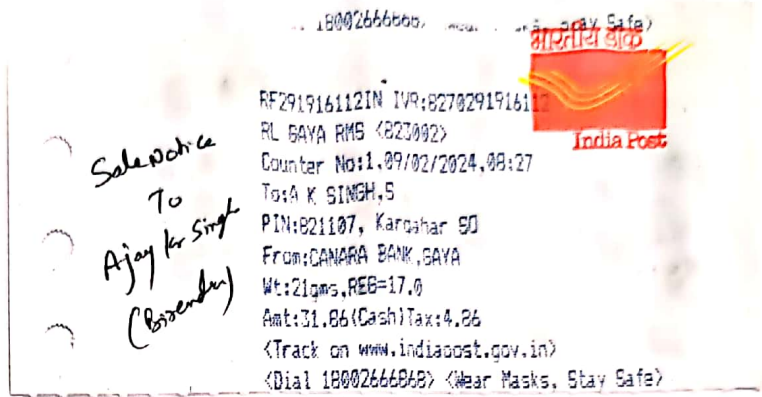 18002666868> Stay Safe>
भारतीय डाक
India Post
RF291916112IN IVR:8270291916112
RL GAYA RMS <823002>
Counter No:1,09/02/2024,08:27
To:A K SINGH,S
PIN:821107, Kargahar SO
From:CANARA BANK,GAYA
Wt:21gms,REG=17.0
Amt:31.86(Cash)Tax:4.86
<Track on www.indiapost.gov.in>
<Dial 18002666868> <Wear Masks, Stay Safe>
Sale Notice
To
Ajay Kr Singh
(Birendra)